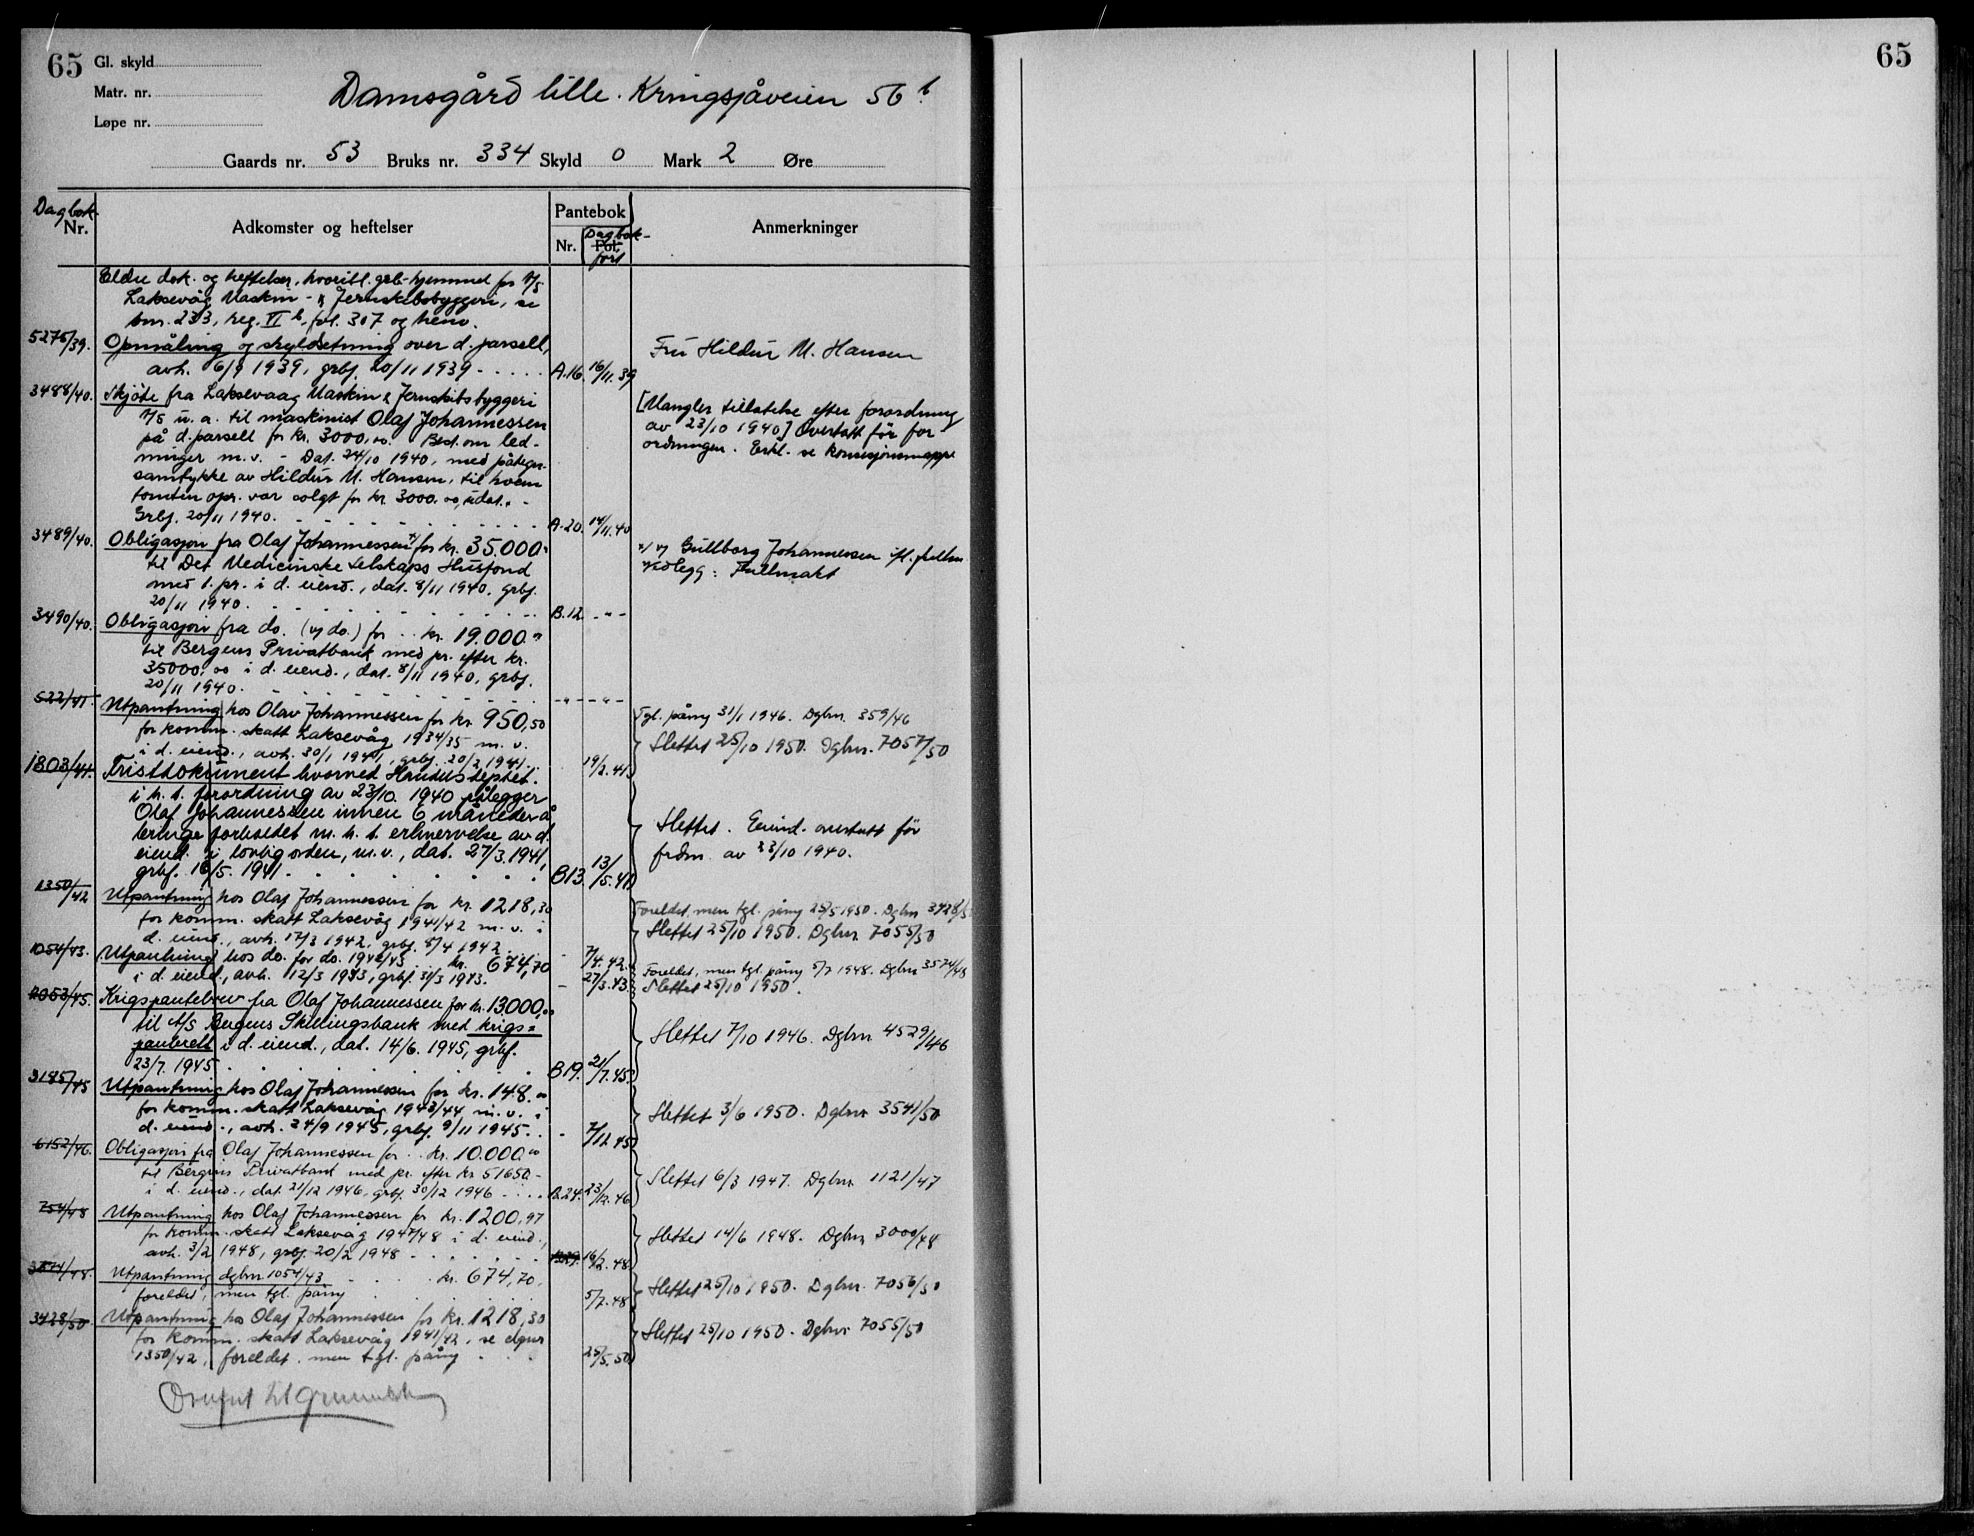 65 Gl. skyld
Matr. nr.
Løpe nr.
Damsgård lille. Kringsjåveien 56 b.
Gaards nr. 53 Bruks nr. 334 Skyld 0 Mark 2 Øre
Dagbok Nr. Adkomster og heftelser Pantebok Nr. Fol. Dagbokført Anmerkninger
Eldre dok. og heftelser, hvoribl. grb-hjemmel for A/S
Laksevåg Maskin- & Jernskibsbyggeri, se
bnr. 233, reg. II b, fol. 307 og henv.
5275/39. Opmåling og skyldsetning over d. parsell,
avh. 6/9 1939, grbf. 20/11 1939 - - - - - A.16. 16/11.39
Fru Hildur M. Hansen
3488/40. Skjøte fra Laksevaag Maskin & Jernskibsbyggeri
A/S u.a. til maskinist Olaf Johannessen
på d. parsell for kr. 3000,00. Best. om led-
ninger m.v. - Dat. 24/10 1940, med påtegn.
samtykke av Hildur M. Hansen, til hvem
tomten opr. var solgt for kr. 3000.00, udat. -
Grbf. 20/11 1940. A.20. 14/11.40
[Mangler tillatelse efter forordning
av 23/10 1940] Overtatt før for
ordningen. Erkl. se konsesjonsmappe
3489/40. Obligasjon fra Olaf Johannessen x) for kr. 35.000.-
til Det Medicinske Selskaps Husfond
med 1. pr. i d. eiend., dat. 8/11 1940, grbf.
20/11 1940. B.12. - " -
x) v/ Gullborg Johannessen ifl. fullm.
Vedlegg: Fullmakt
3490/40. Obligasjon fra do. (v/ do.) for .. kr. 19.000.-
til Bergens Privatbank med pr. efter kr.
35000,00 i d. eiend., dat. 8/11 1940, grbf.
20/11 1940. - " - - " -
522/41. Utpantning hos Olav Johannessen for kr. 950,50
for komm. skatt Laksevåg 1934/35 m.v.
i d. eiend., avh. 30/1 1941, grbf. 20/2 1941. 19/2.41.
Tgl. påny 31/1 1946. Dgbnr. 359/46
Slettet 25/10 1950. Dgbnr. 7057/50
1803/41. Fristdokument hvorved Handelsdeptet.
i h.t. forordning av 23/10. 1940 pålegger
Olaf Johannessen innen 6 måneder å
bringe forholdet m.h.t. erhvervelse av d.
eiend. i lovlig orden, m.v., dat. 27/3.1941,
grbf. 16/5. 1941 B13. 13/5.41
Slettet. Eiend. overtatt før
frdn. av 23/10 1940.
1350/42 Utpantning hos Olaf Johannessen for kr. 1218,30
for komm. skatt Laksevåg 1941/42 m.v. i
d. eiend., avh. 17/3 1942, grbf. 8/4 1942 - 7/4.42.
Foreldet, men tgl. påny 25/5 1950. Dgbnr 3428/50
Slettet 25/10 1950. Dgbnr. 7055/50
1054/43. Utpantning hos do. for do. 1942/43 kr. 674,70
i d. eiend., avh. 12/3 1943, grbf. 31/3 1943. - 27/3.43.
Foreldet, men tgl. påny 5/7 1948. Dgbnr 3574/48
Slettet 25/10 1950.
2053/45. Krigspantebrev fra Olaf Johannessen for kr. 13000,00
til A/S Bergens Skillingsbank med krigs=
panterett i d. eiend., dat. 14/6. 1945, grbf.
23/7. 1945 B19. 21/7.45.
Slettet 7/10 1946. Dgbnr 4529/46
3185/45 Utpantning hos Olaf Johannessen for kr. 148.00
for komm. skatt Laksevåg 1943/44 m.v. i
d. eiend., avh. 24/9 1945, grbf. 9/11 1945. . - 7/12.45
Slettet 3/6 1950. Dgbnr 3541/50
6152/46. Obligasjon fra Olaf Johannessen for .. kr. 10.000.00
til Bergens Privatbank med pr. efter kr 51650.-
i d. eiend., dat. 21/12 1946, grbf. 30/12 1946 - . . . B.24. 23/12.46
Slettet 6/3 1947. Dgbnr. 1121/47
754/48 Utpantning hos Olaf Johannessen for kr. 1200,97
for komm. skatt Laksevåg 1947/48 i d. eiend.,
avh. 3/2 1948, grbf. 20/2 1948 - 16/2.48
Slettet 14/6 1948. Dgbnr 3000/48
3574/48. Utpantning dgbnr 1054/43 kr. 674,70.
foreldet, men tgl. påny 5/7.48
Slettet 25/10 1950. Dgbnr. 7056/50
3428/50 Utpantning hos Olaf Johannessen for kr. 1218,30
for komm. skatt Laksevåg 1941/42, se dgnr
1350/42, foreldet, men tgl. påny 25/5.50
Slettet 25/10 1950. Dgbnr 7055/50
65